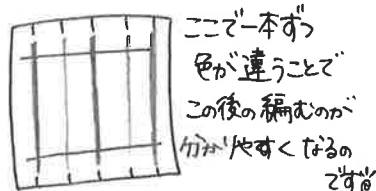 ここで一本ずつ
色が違うことで
この後の編むのが
分かりやすくなるの
です◎